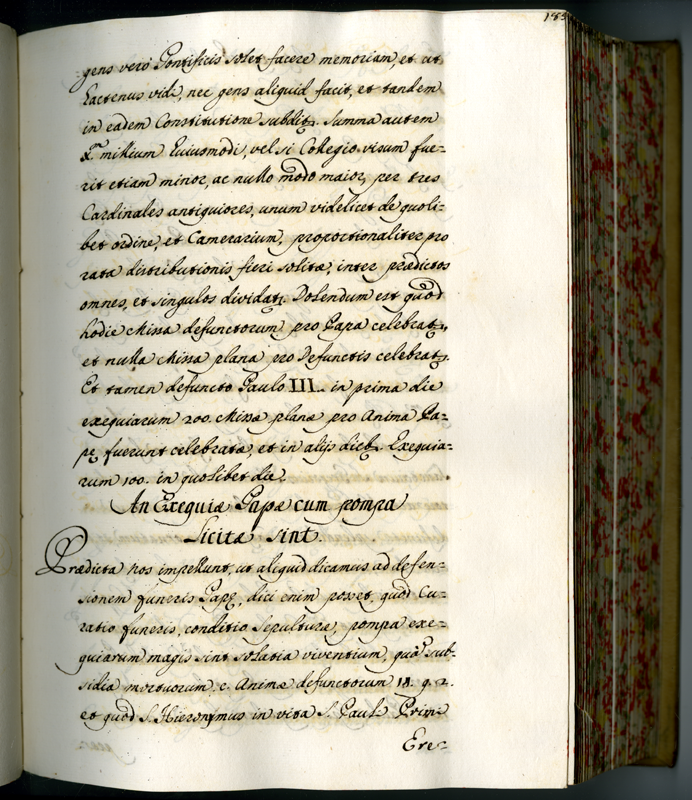 185
gens verò Pontificis solet facere memoriam, et ut
hactenus vidi, nec gens aliquid facit, et tandem
in eadem Constitutione subdit. Summa autem
millium huiusmodi, vel si Collegio visum fue-
rit etiam minor, ac nullo modo maior, per tres
Cardinales antiquiores, unum videlicet de quoli-
bet ordine, et Camerarium, proportionaliter pro
rata distributionis fieri solitæ, inter prædictos
omnes, et singulos dividat. Dolendum est quod
hodie Missa defunctorum pro Papa celebrat,
et nulla Missa plana pro Defunctis celebrat.
Et tamen defuncto Paulo III. in prima die
exequiarum 200. Missæ planæ pro Anima Pa-
pę fuerunt celebratæ, et in alijs dieb. Exequia-
rum 100. in quolibet die.
An Exequiæ Papæ cum pompa
licitæ sint.
Prædicta nos impellunt, ut aliquid dicamus ad defen-
sionem funeris Papę, dici enim posset, quod Cu-
ratio funeris, conditio Sepulturæ, pompa exe-
quiarum magis sint solatia viventium, quā sub-
sidia mortuorum c. Anima defunctorum 13. q. 2.
et quod S. Hieronymus in vita S. Pauli Primi
Ere-